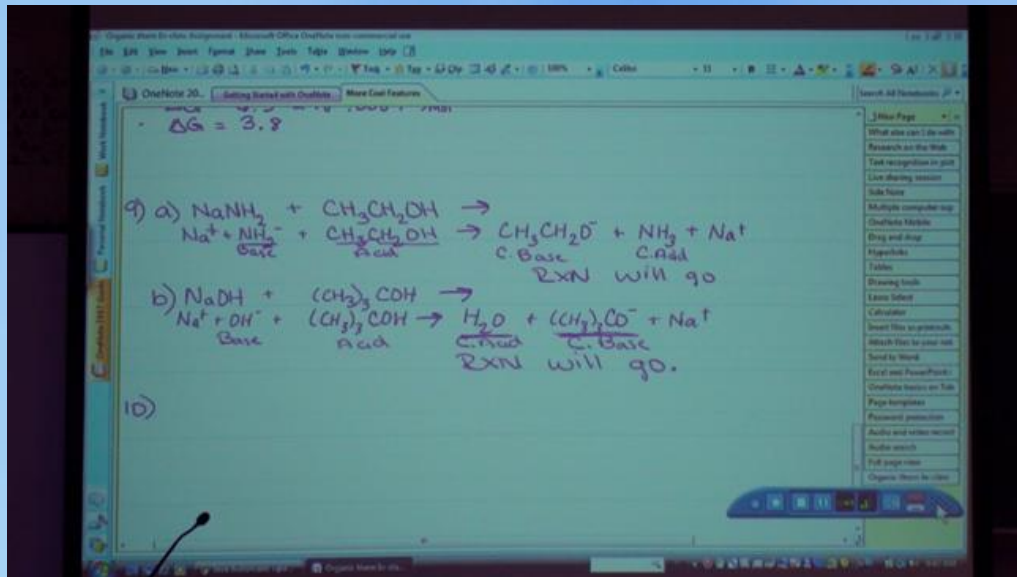 Organic Chem In-class Assignment - Microsoft Office OneNote non-commercial use
File Edit View Insert Format Share Tools Table Window Help
New
Tag
100%
Calibri
11
B
OneNote 20..
Getting Started with OneNote
More Cool Features
Search All Notebooks
Work Notebook
Personal Notebook
OneNote 2007 Guide
ΔG = 3.8
9) a) NaNH₂ + CH₃CH₂OH →
Na⁺ + NH₂⁻ + CH₃CH₂OH → CH₃CH₂O⁻ + NH₃ + Na⁺
Base Acid C. Base C. Acid
RXN will go
b) NaOH + (CH₃)₃COH →
Na⁺ + OH⁻ + (CH₃)₃COH → H₂O + (CH₃)₃CO⁻ + Na⁺
Base Acid C. Acid C. Base
RXN will go.
10)
New Page
What else can I do with
Research on the Web
Text recognition in pict
Live sharing session
Side Note
Multiple computer sup
OneNote Mobile
Drag and drop
Hyperlinks
Tables
Drawing tools
Lasso Select
Calculator
Insert files as printouts
Attach files to your not
Send to Word
Excel and PowerPoint
OneNote basics on Tab
Page templates
Password protection
Audio and video record
Audio search
Full page view
Organic Chem In-class
Organic Chem In-cla...